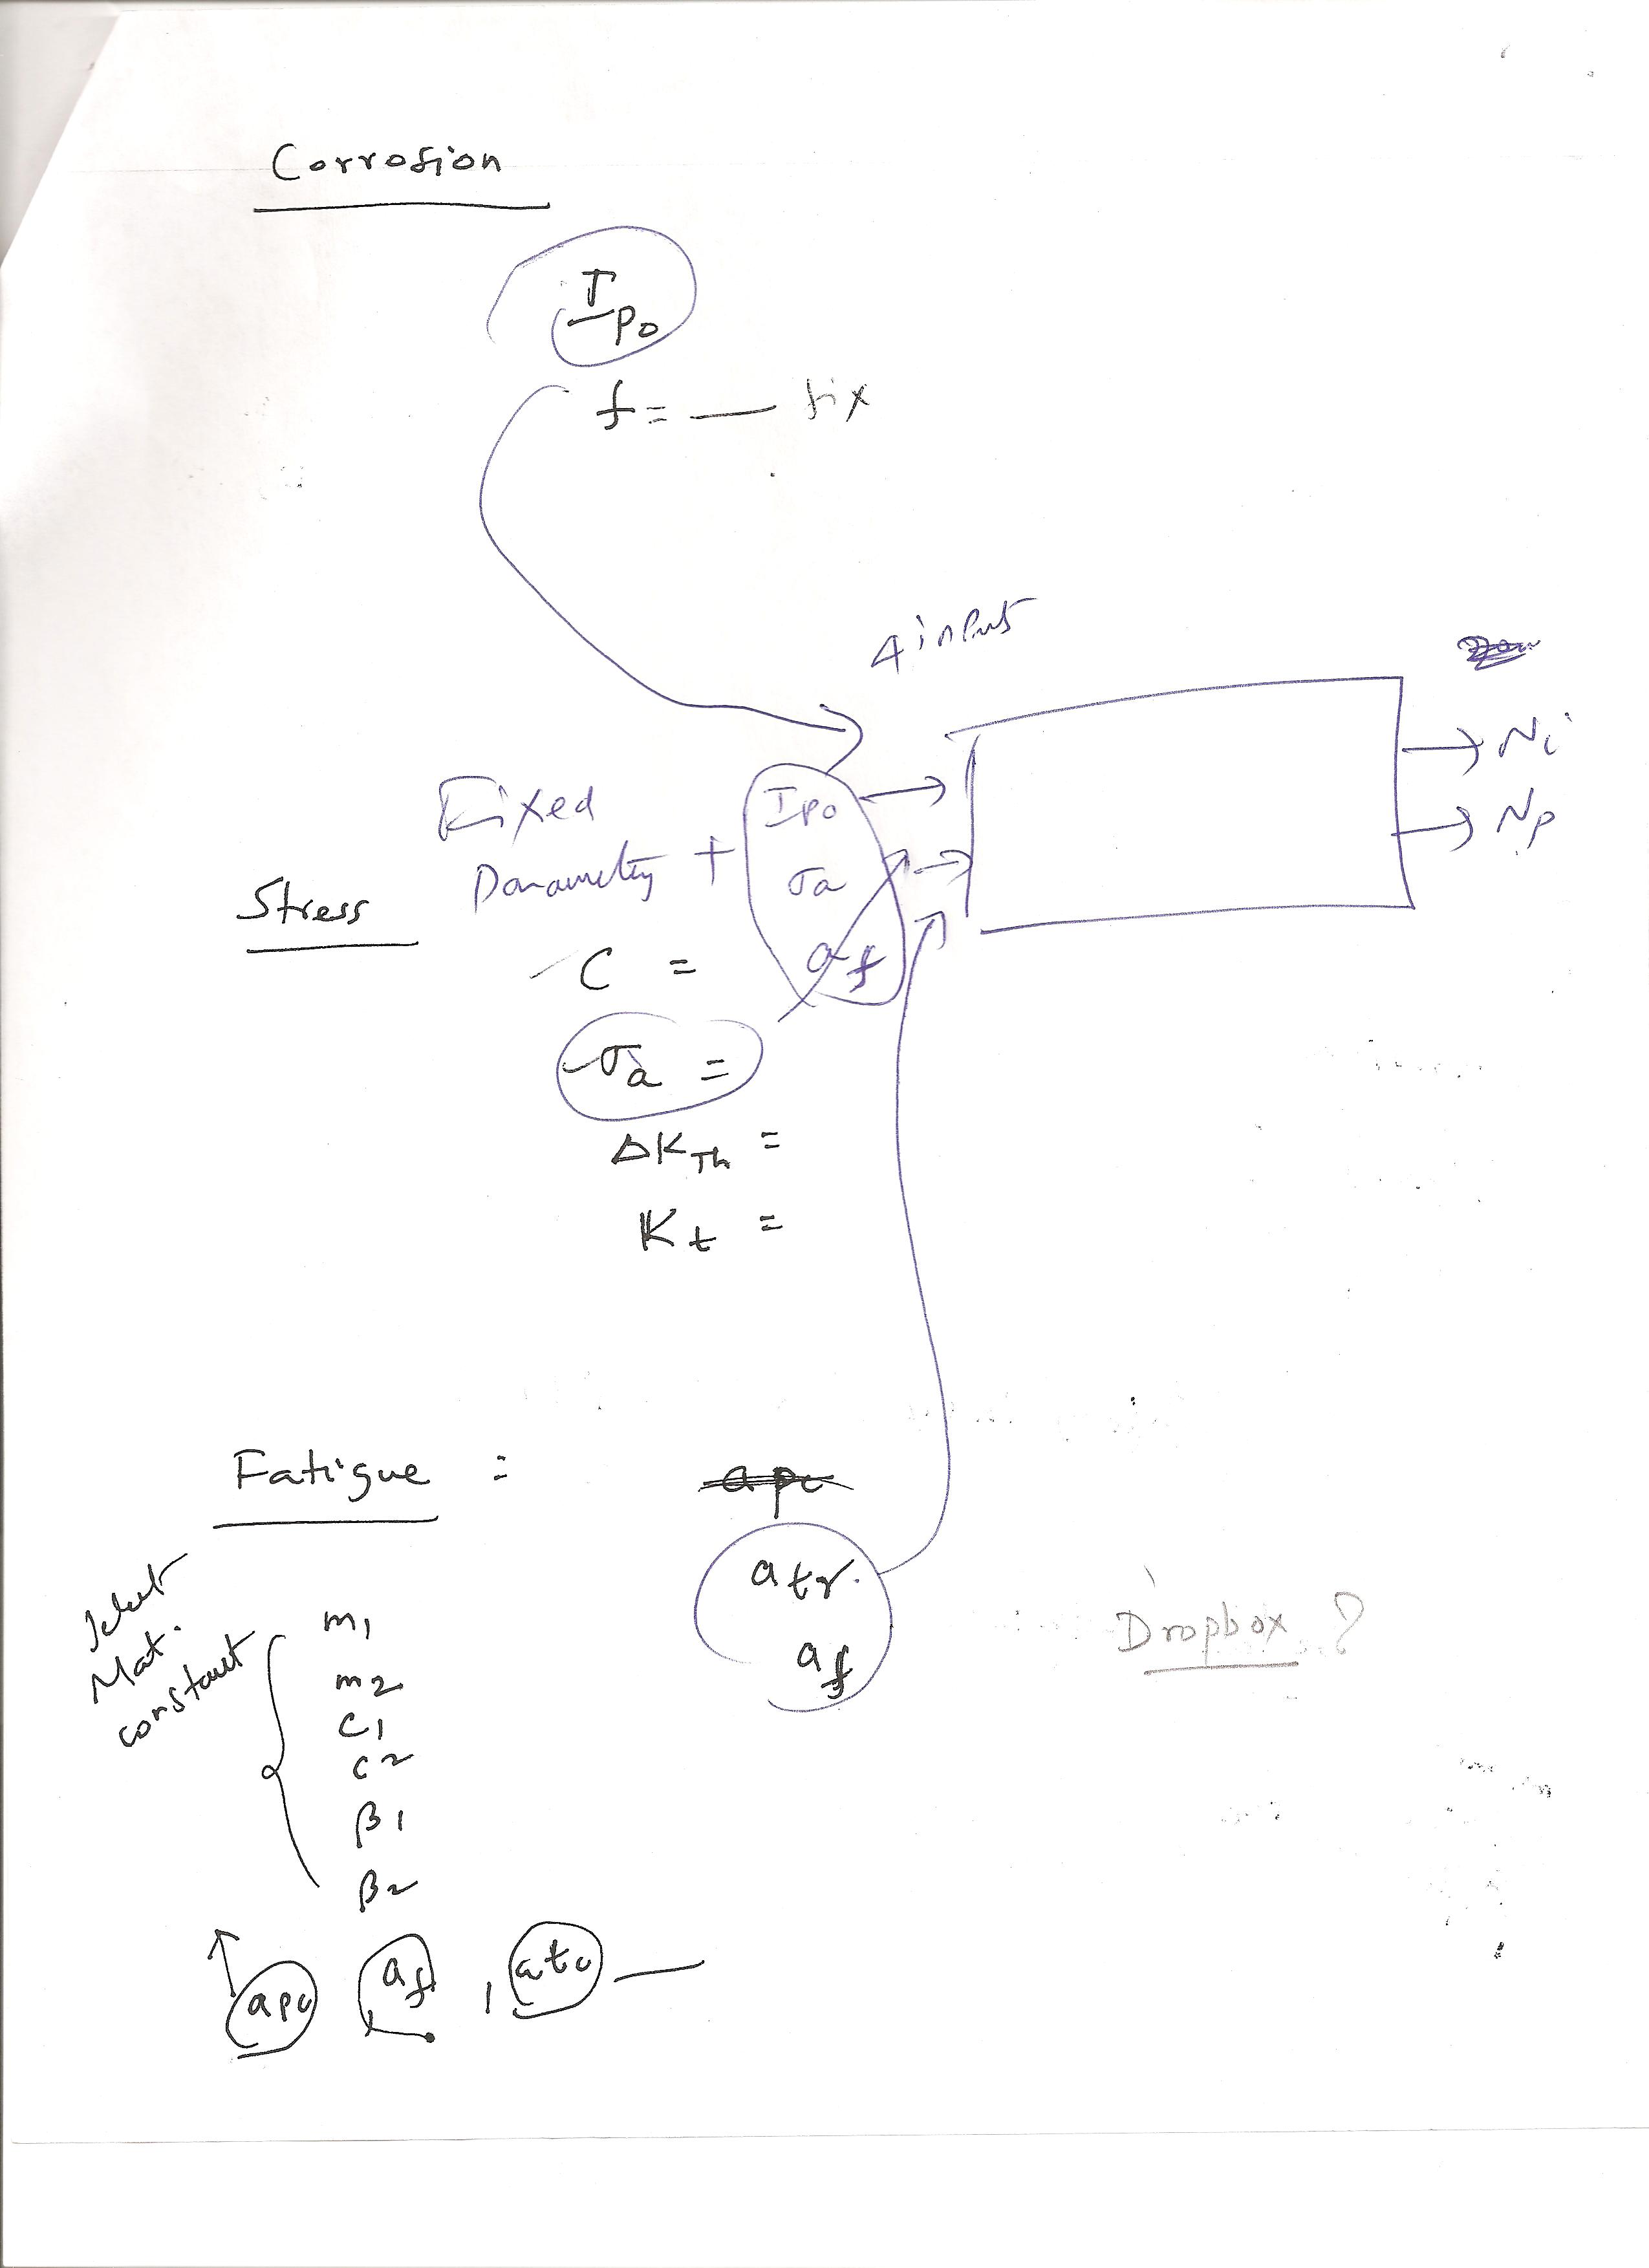 Corrosion
Ipo
f = — fix
4 input
Fixed
Parameters +
Ipo
σa
af
Ni
Np
Stress
C =
σa =
ΔKTh =
Kt =
Fatigue :
apc
atr.
af
Select
Mat.
constant
m1
m2
C1
C2
β1
β2
Dropbox ?
apc af , atc —